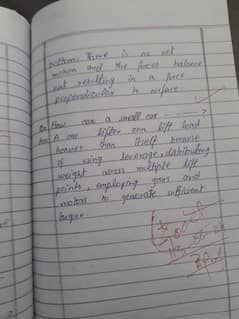 bottom. There is no net
motion and the forces balance
out resulting in a force
perpendicular to surface.
Q. How can a small car ?
Ans. A car lifter can lift load
heavier than itself because
of using leverage, distributing
weight across multiple lift
points, employing gears and
motors to generate sufficient
torque.